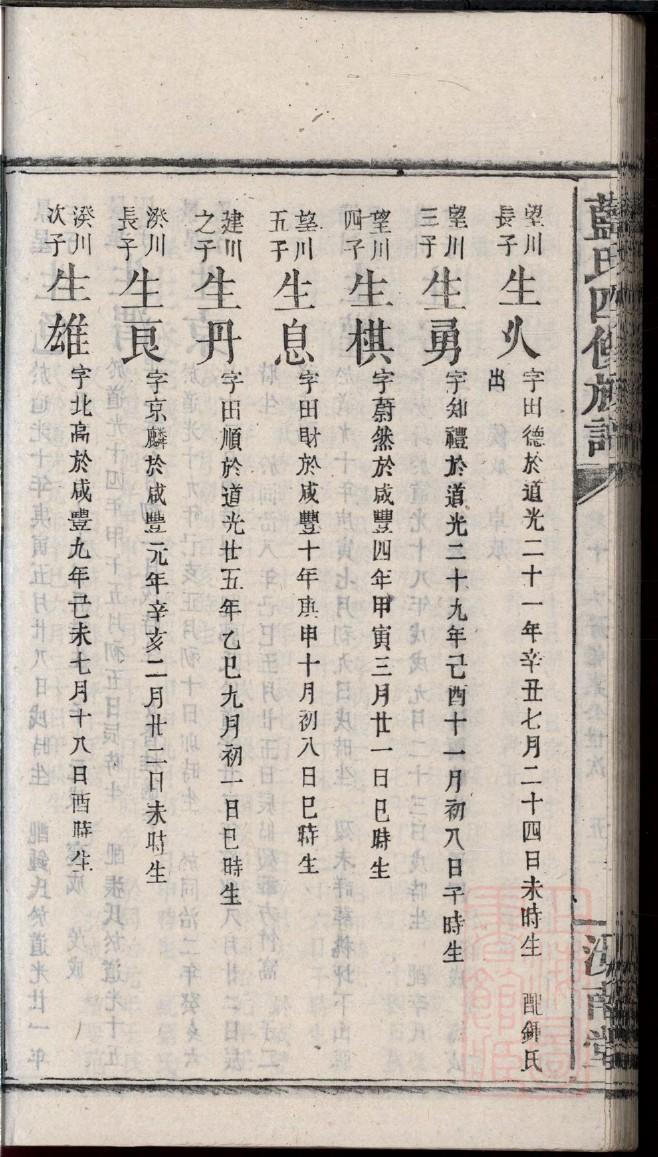 藍氏四修族譜
望川長子 生火 字田德於道光二十一年辛丑七月二十四日未時生 配鍾氏
出
望川三子 生勇 字知禮於道光二十九年己酉十一月初八日子時生
望川四子 生棋 字蔚然於咸豐四年甲寅三月廿一日巳時生
望川五子 生息 字田財於咸豐十年庚申十月初八日巳時生
建川之子 生丹 字田順於道光廿五年乙巳九月初一日巳時生
湀川長子 生良 字京麟於咸豐元年辛亥二月廿二日未時生
湀川次子 生雄 字北高於咸豐九年己未七月十八日酉時生
南堂